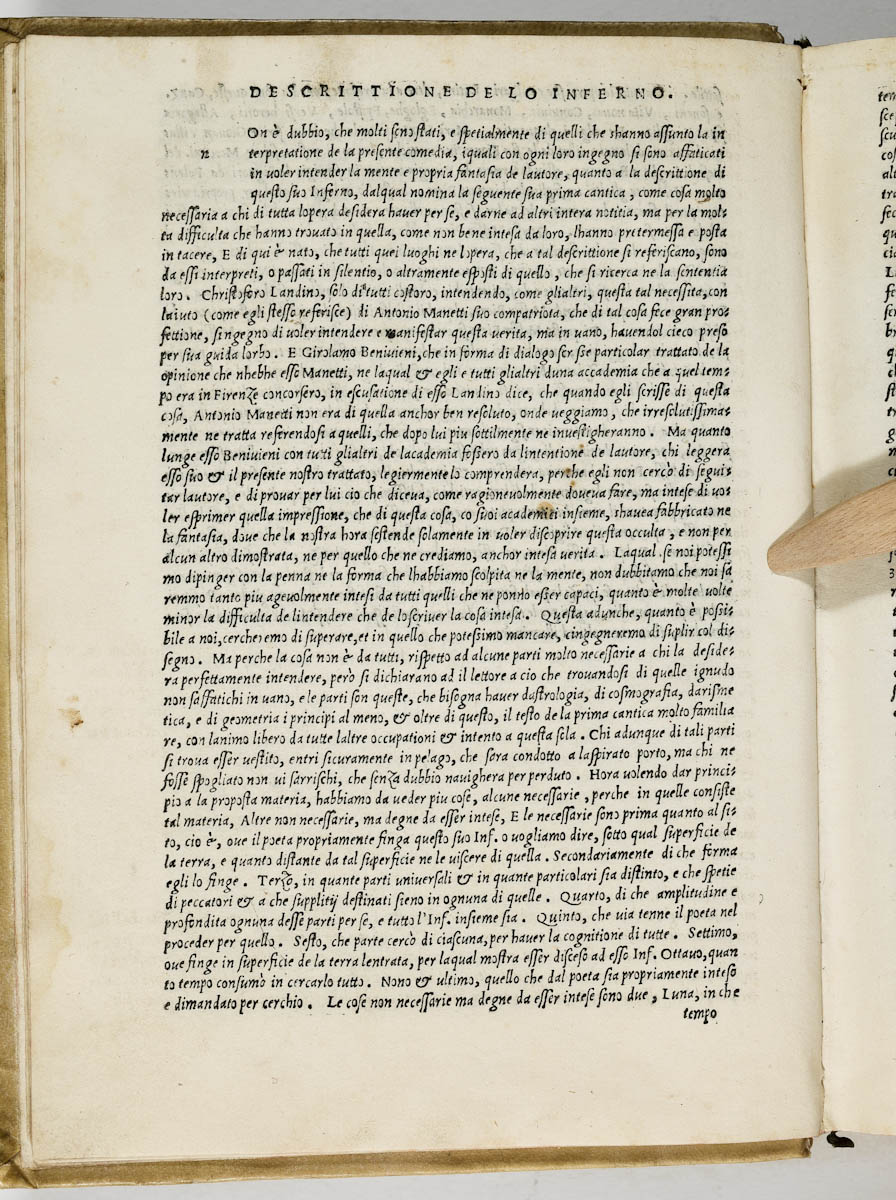 DESCRITTIONE DE LO INFERNO.
On è dubbio, che molti sono stati, e spetialmente di quelli che shanno assunto la in
n
terpretatione de la presente comedia, iquali con ogni loro ingegno si sono affaticati
in uoler intender la mente e propria fantasia de lautore, quanto a la descrittione di
questo suo Inferno, dalqual nomina la seguente sua prima cantica, come cosa molto
necessaria a chi di tutta lopera desidera hauer per se, e darne ad altri intera notitia, ma per la mol-
ta difficulta che hanno trouato in quella, come non bene intesa da loro, lhanno pretermessa e posta
in tacere, E di qui è nato, che tutti quei luoghi ne lopera, che a tal descrittione si referiscano, sono
da essi interpreti, o passati in silentio, o altramente esposti di quello, che si ricerca ne la sententia
loro. Christoforo Landino, solo di tutti costoro, intendendo, come glialtri, questa tal necessita, con
laiuto (come egli stesso referisce) di Antonio Manetti suo compatriota, che di tal cosa fece gran pro-
fettione, singegno di uoler intendere e manifestar questa uerita, ma in uano, hauendol cieco preso
per sua guida lorbo. E Girolamo Beniuieni, che in forma di dialogo fer se particolar trattato de la
opinione che nhebbe esso Manetti, ne laqual & egli e tutti glialtri duna accademia che a quel tem-
po era in Firenze concorsero, in escusatione di esso Landino dice, che quando egli scrisse di questa
cosa, Antonio Manetti non era di quella anchor ben resoluto, onde ueggiamo, che irresolutissima-
mente ne tratta referendosi a quelli, che dopo lui piu sottilmente ne inuestigheranno. Ma quanto
lunge esso Beniuieni con tutti glialtri de lacademia fossero da lintentione de lautore, chi leggera
esso suo & il presente nostro trattato, legiermente lo comprendera, perche egli non cercò di segui-
tar lautore, e di prouar per lui cio che diceua, come ragioneuolmente doueua fare, ma intese di uo-
ler esprimer quella impressione, che di questa cosa, co suoi academici insieme, shauea fabbricato ne
la fantasia, doue che la nostra hora sestende solamente in uoler discoprire questa occulta, e non per
alcun altro dimostrata, ne per quello che ne crediamo, anchor intesa uerita. Laqual se noi potessi
mo dipinger con la penna ne la forma che lhabbiamo scolpita ne la mente, non dubbitamo che noi sa
remmo tanto piu ageuolmente intesi da tutti quelli che ne ponno esser capaci, quanto è molte uolte
minor la difficulta de lintendere che de lo scriuer la cosa intesa. Questa adunche, quanto è possi-
bile a noi, cercheremo di superare, et in quello che potessimo mancare, cingegneremo di suplir col di-
segno. Ma perche la cosa non è da tutti, rispetto ad alcune parti molto necessarie a chi la deside-
ra perfettamente intendere, però si dichiarano ad il lettore a cio che trouandosi di quelle ignudo
non saffatichi in uano, e le parti son queste, che bisogna hauer dastrologia, di cosmografia, darisme
tica, e di geometria i principi al meno, & oltre di questo, il testo de la prima cantica molto familia
re, con lanimo libero da tutte laltre occupationi & intento a questa sola. Chi adunque di tali parti
si troua esser uestito, entri sicuramente in pelago, che sara condotto a laspirato porto, ma chi ne
fosse spogliato non ui sarrischi, che senza dubbio nauighera per perduto. Hora uolendo dar princi-
pio a la proposta materia, habbiamo da ueder piu cose, alcune necessarie, perche in quelle consiste
tal materia, Altre non necessarie, ma degne da esser intese, E le necessarie sono prima quanto al si-
to, cio è, oue il poeta propriamente finga questo suo Inf. o uogliamo dire, sotto qual superficie de
la terra, e quanto distante da tal superficie ne le uiscere di quella. Secondariamente di che forma
egli lo finge. Terzo, in quante parti uniuersali & in quante particolari sia distinto, e che spetie
di peccatori & a che supplitij destinati sieno in ognuna di quelle. Quarto, di che amplitudine e
profondita ognuna desse parti per se, e tutto l'Inf. insieme sia. Quinto, che uia tenne il poeta nel
proceder per quello. Sesto, che parte cercò di ciascuna, per hauer la cognitione di tutte. Settimo,
oue finge in superficie de la terra lentrata, per laqual mostra esser disceso ad esso Inf. Ottauo, quan
to tempo consumò in cercarlo tutto. Nono & ultimo, quello che dal poeta sia propriamente inteso
e dimandato per cerchio. Le cose non necessarie ma degne da esser intese sono due, Luna, in che
tempo